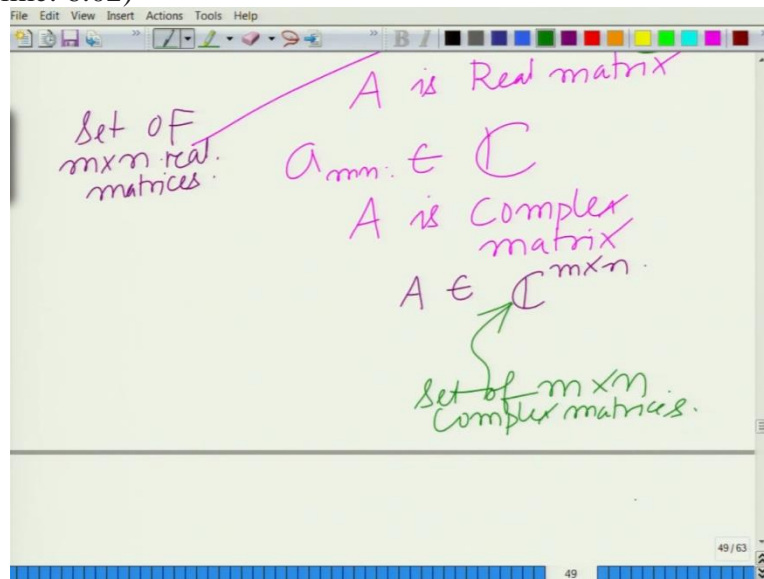 File Edit View Insert Actions Tools Help
A is Real matrix
Set of
m×n real.
matrices.
a_mn. ∈ ℂ
A is Complex
matrix
A ∈ ℂ^m×n.
Set of m×n
Complex matrices.
49/63
49